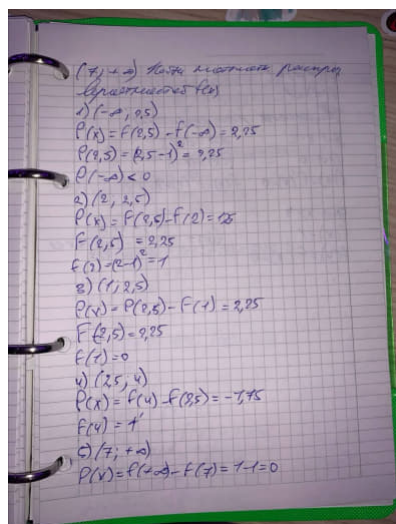 (7; +∞) Найти плотность распред
вероятностей f(x)
1) (-∞, 2,5)
P(x) = F(2,5) - F(-∞) = 2,25
P(2,5) = (2,5-1)² = 2,25
P(-∞) < 0
2) (2, 2,5)
P(x) = F(2,5) - F(2) =
F(2,5) = 2,25
F(2) = (2-1)² = 1
3) (1; 2,5)
P(x) = P(2,5) - F(1) = 2,25
F(2,5) = 2,25
F(1) = 0
4) (2,5, 4)
P(x) = F(4) - F(2,5) = -1,75
F(4) = 1
5) (7; +∞)
P(x) = F(+∞) - F(7) = 1-1 = 0